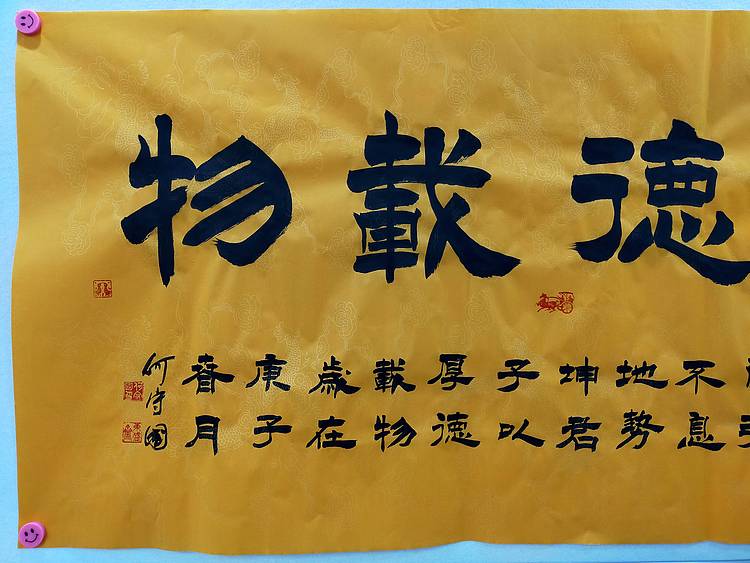 德載物
不息
地勢
坤君
子以
厚德
載物
歲在
庚子
春月
何守國